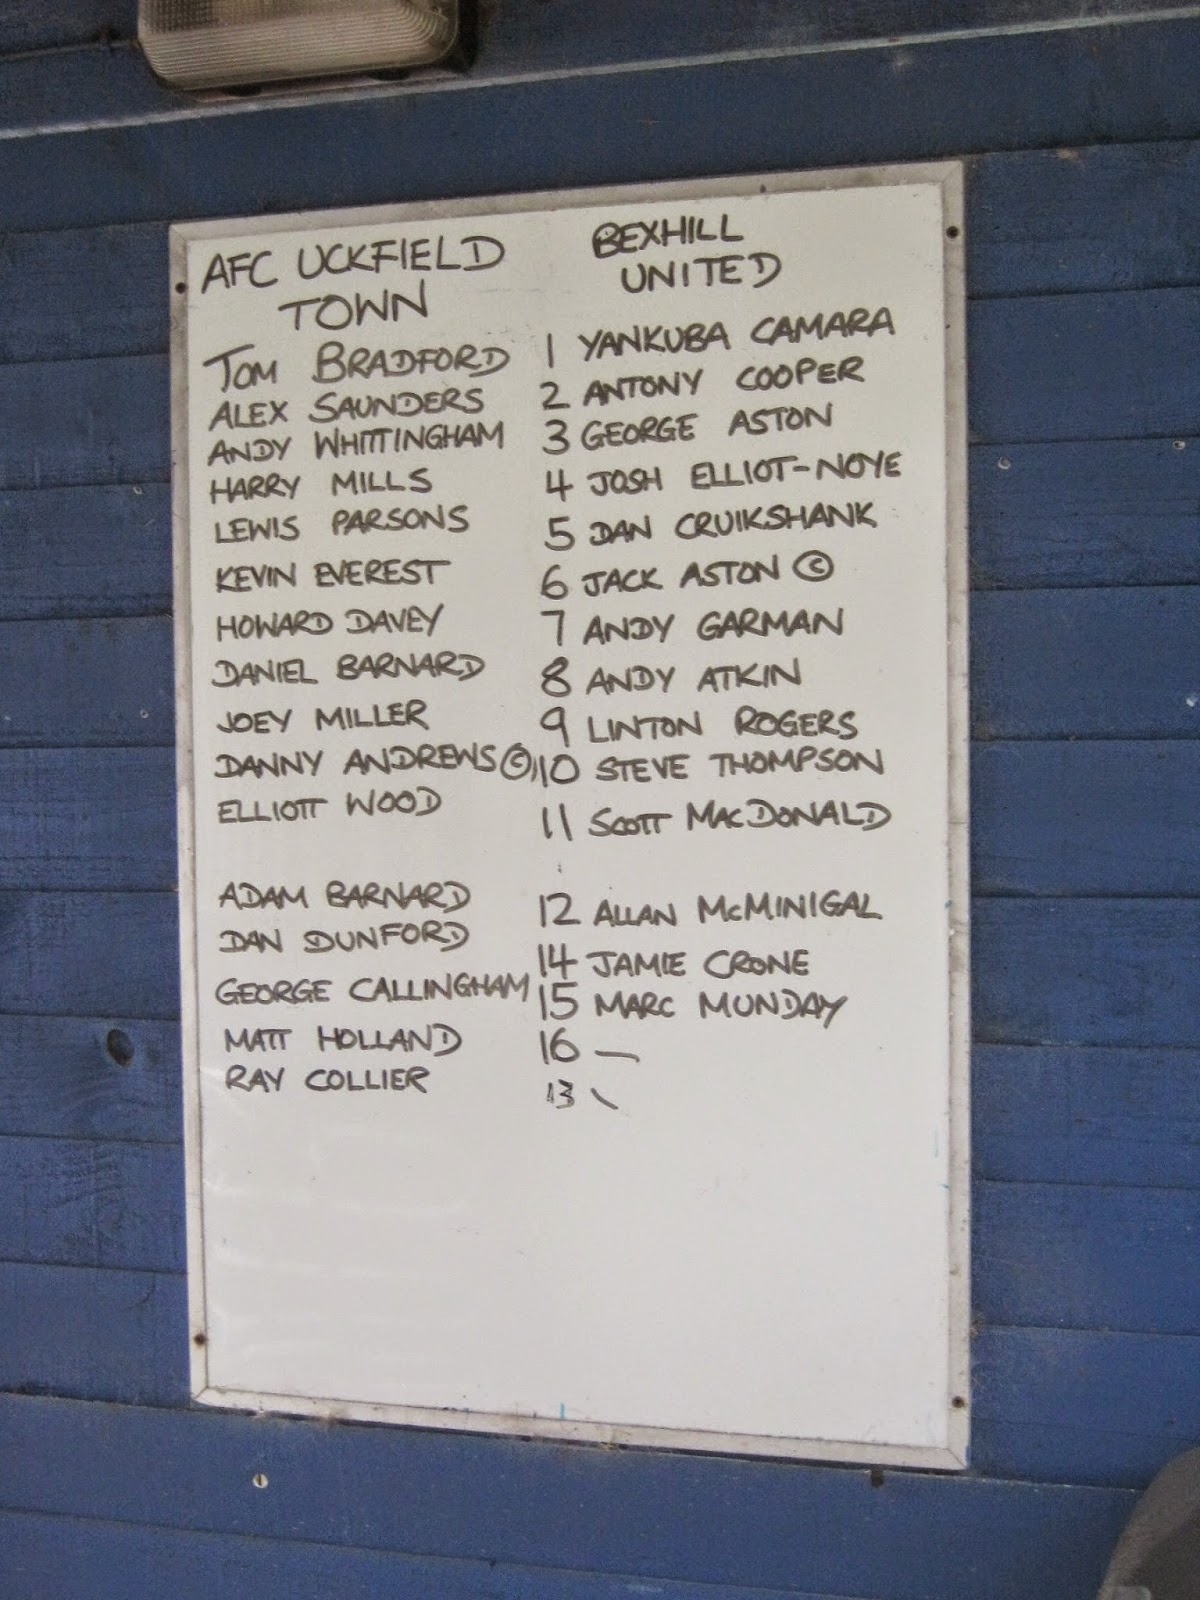 AFC UCKFIELD TOWN
BEXHILL UNITED
TOM BRADFORD 1 YANKUBA CAMARA
ALEX SAUNDERS 2 ANTONY COOPER
ANDY WHITTINGHAM 3 GEORGE ASTON
HARRY MILLS 4 JOSH ELLIOT-NOYE
LEWIS PARSONS 5 DAN CRUIKSHANK
KEVIN EVEREST 6 JACK ASTON ©
HOWARD DAVEY 7 ANDY GARMAN
DANIEL BARNARD 8 ANDY ATKIN
JOEY MILLER 9 LINTON ROGERS
DANNY ANDREWS © 10 STEVE THOMPSON
ELLIOTT WOOD 11 SCOTT MACDONALD
ADAM BARNARD 12 ALLAN McMINIGAL
DAN DUNFORD 14 JAMIE CRONE
GEORGE CALLINGHAM 15 MARC MUNDAY
MATT HOLLAND 16 —
RAY COLLIER 13 -